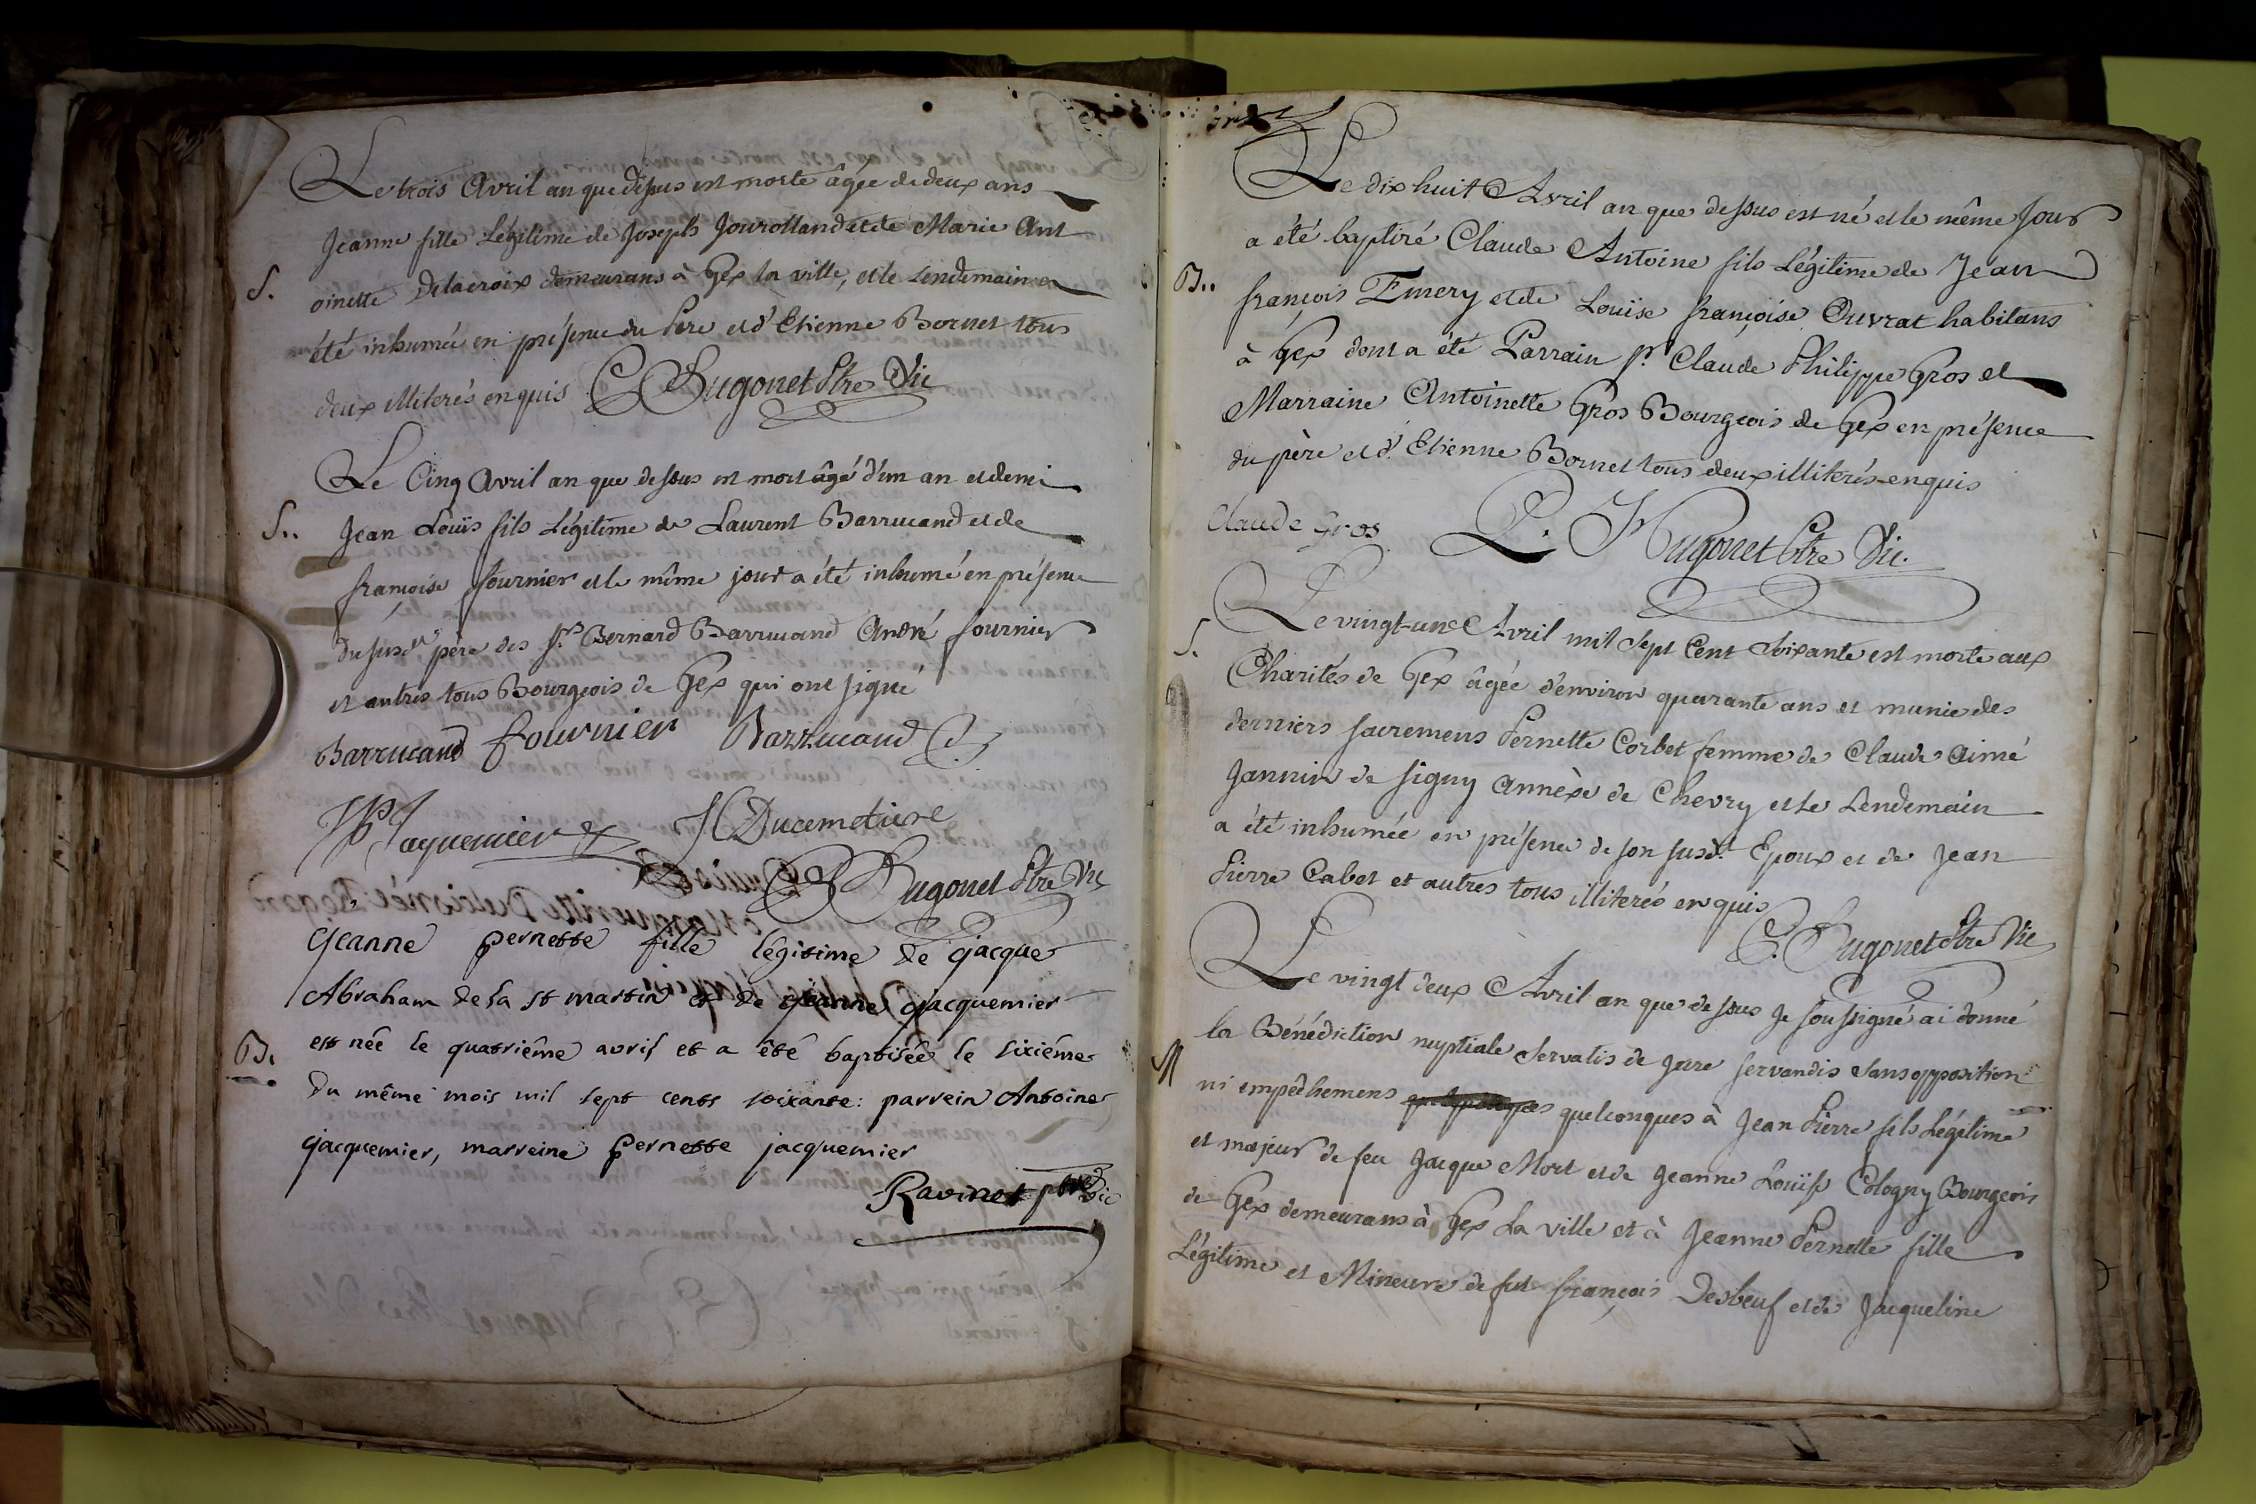 Le trois Avril an que dessus est morte âgée de deux ans
Jeanne fille Légitime de Joseph Jourolland et de Marie Ant
S.
oinette Delacroix demeurans à Gex la ville, et le Lendemain a
été inhumée en présence du Pere et d'Etienne Bornet tous
deux illiterés enquis C. Hugonet Ptre Vic
Le Cinq Avril an que dessus est mort âgé d'un an et demi
S..
Jean Louis fils Légitime de Laurent Barrucand et de
françoise fournier et le même jour a été inhumé en présence
du susdt père des Srs Bernard Barrucand André fournier
et autres tous Bourgeois de Gex qui ont signé
Barrucand fournier Barrucand
Jaquemier J Ducimetiere
C. Hugonet Ptre Vic
Jeanne pernette fille légitime de Jacque
Abraham de La st martin et de Jeanne Jacquemier
B.
est née le quatriême avril et a êté baptisée le sixiéme
du même mois mil sept cents soixante: parrein Antoine
Jacquemier, marreine pernette jacquemier
Ravinet ptre Vic
Le dix huit Avril an que dessus est né et le même Jour
a été baptizé Claude Antoine fils Légitime de Jean
B..
françois Emery et de Louïse françoise Ouvrat habitans
à Gex dont a été Parrain Sr Claude Philippe Gros et
Marraine Antoinette Gros Bourgeois de Gex en présence
du père et d'Etienne Bornet tous deux illiterés enquis
Claude Gros C. Hugonet Ptre Vic.
Le vingt-une Avril mil sept Cent soixante est morte aux
S.
Charités de Gex âgée d'environ quarante ans et munie des
derniers sacremens Pernette Corbet femme de Claude Aimé
Jannin de Signy Annèxe de Chevry et le Lendemain
a été inhumée en présence de son susdt Epoux et de Jean
Pierre Cabet et autres tous illiterés enquis
C. Hugonet Ptre Vic
Le vingt deux Avril an que dessus Je soussigné ai donné
la Bénédiction nuptiale servatis de Jure servandis sans opposition
M
ni empêchemens quelconques à Jean Pierre fils Légitime
et majeur de feu Jacque Mort et de Jeanne Louïse Cologny Bourgeois
de Gex demeurans à Gex La ville et à Jeanne Pernette fille
Légitime et Mineure de fut françois Desbeuf et de Jacqueline